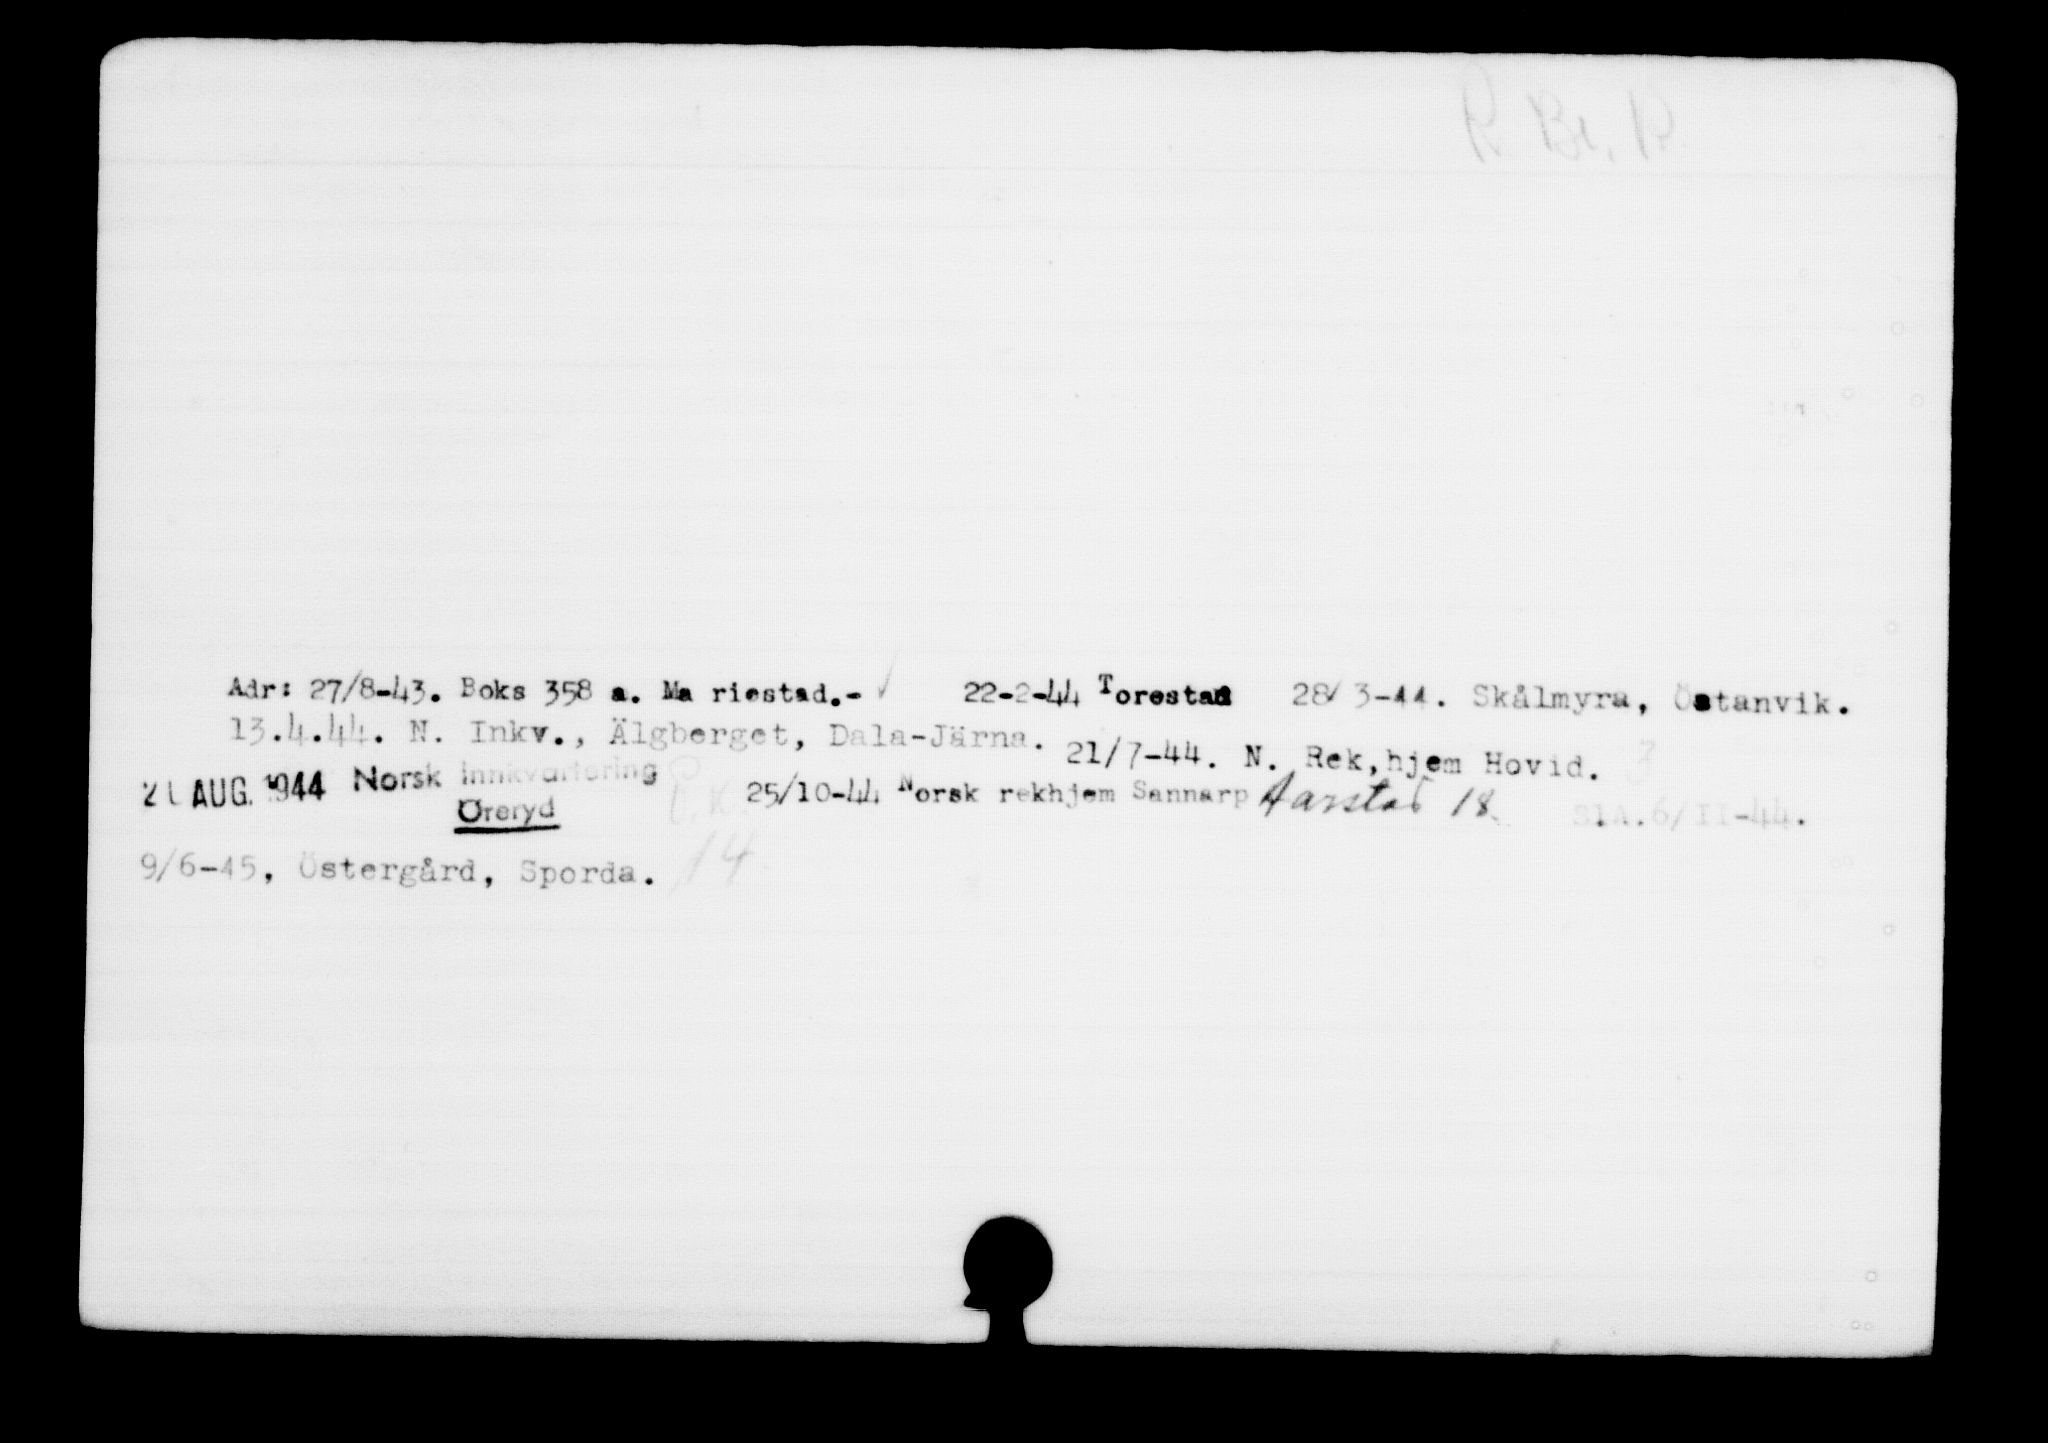 R. Br. R.
Adr: 27/8-43. Boks 358 a. Ma riestad.- 22-2-44 Torestad 28/3-44. Skålmyra, Östanvik.
13.4.44. N. Inkv., Älgberget, Dala-Järna. 21/7-44. N. Rek,hjem Hovid.
AUG. 1944 Norsk innkvartering 25/10-44 Norsk rekhjem Sannarp Aarstad 18 SlA.6/II-44.
Öreryd
9/6-45, Östergård, Sporda. 14